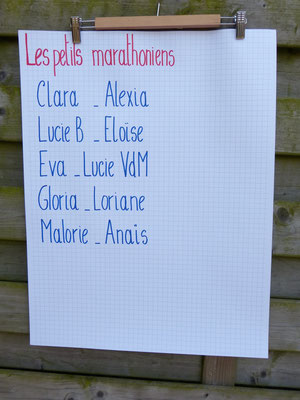 Les petits marathoniens
Clara _ Alexia
Lucie B _ Eloïse
Eva _ Lucie VdM
Gloria _ Loriane
Malorie _ Anais